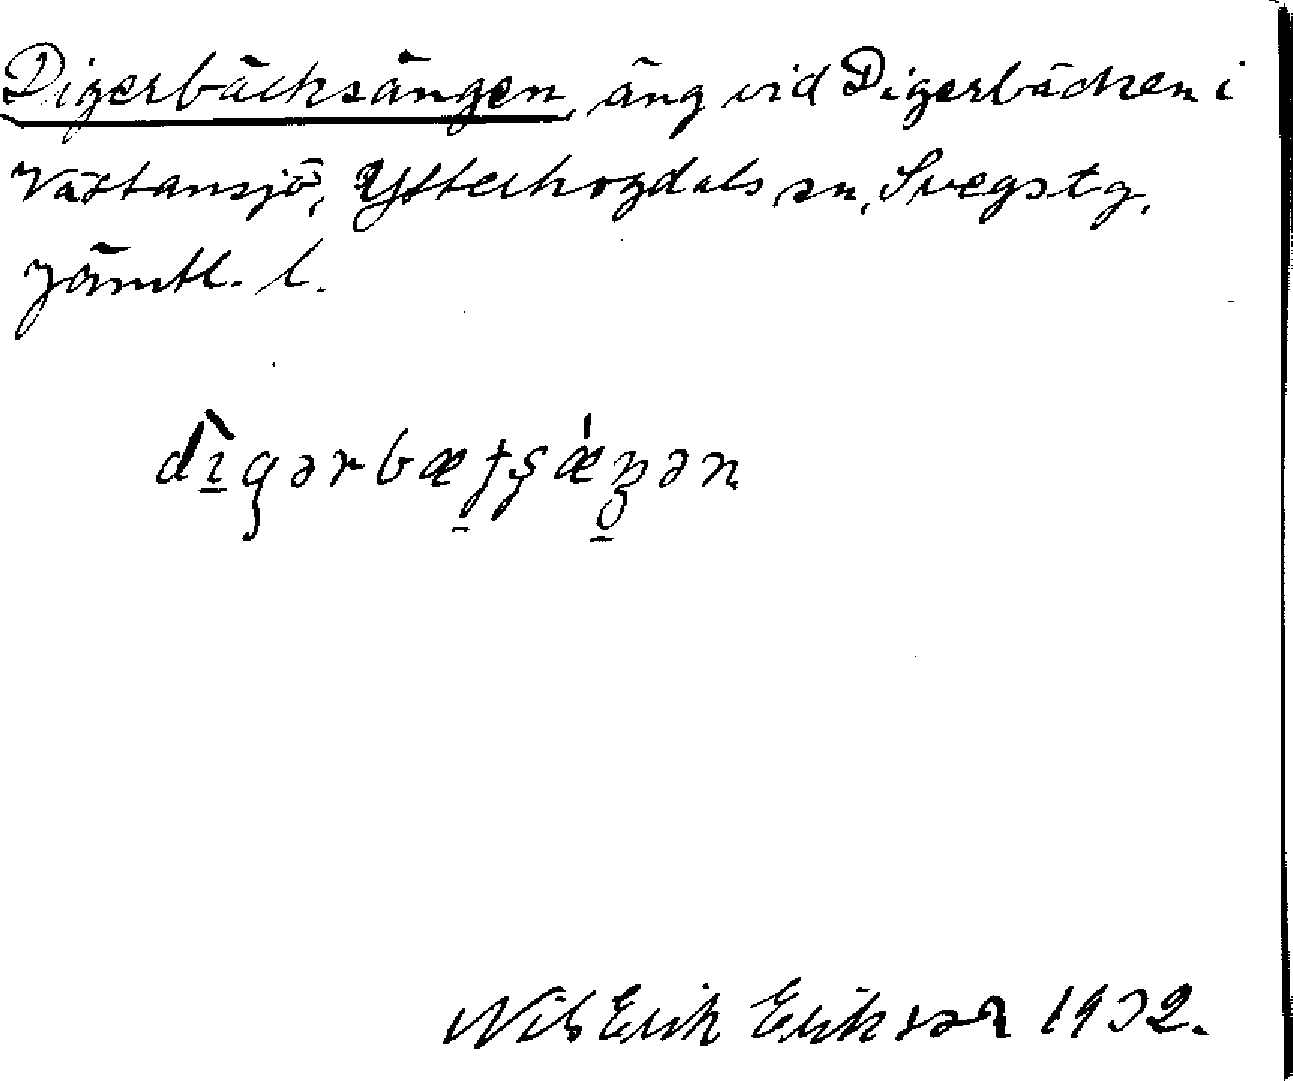 Digerbäcksängen, äng vid Digerbäcken i
Västansjö, Ytterhogdals sn, Svegs tg,
Jämtl. l.
Nils Erik Erikson 1932.